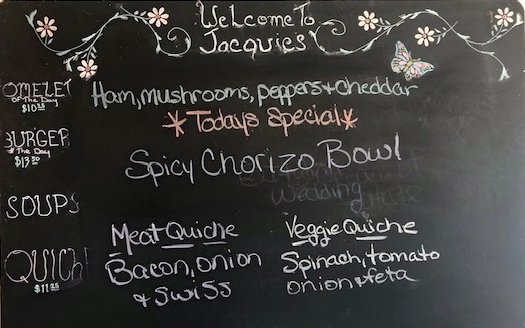 Welcome To
Jacquies
OMELET
of The Day
Ham, mushrooms, peppers + cheddar
*Todays Special*
BURGER
of The Day
Spicy Chorizo Bowl
Wedding
SOUPS
Meat Quiche
Veggie Quiche
QUICH
Bacon, onion
& Swiss
Spinach, tomato
onion & feta